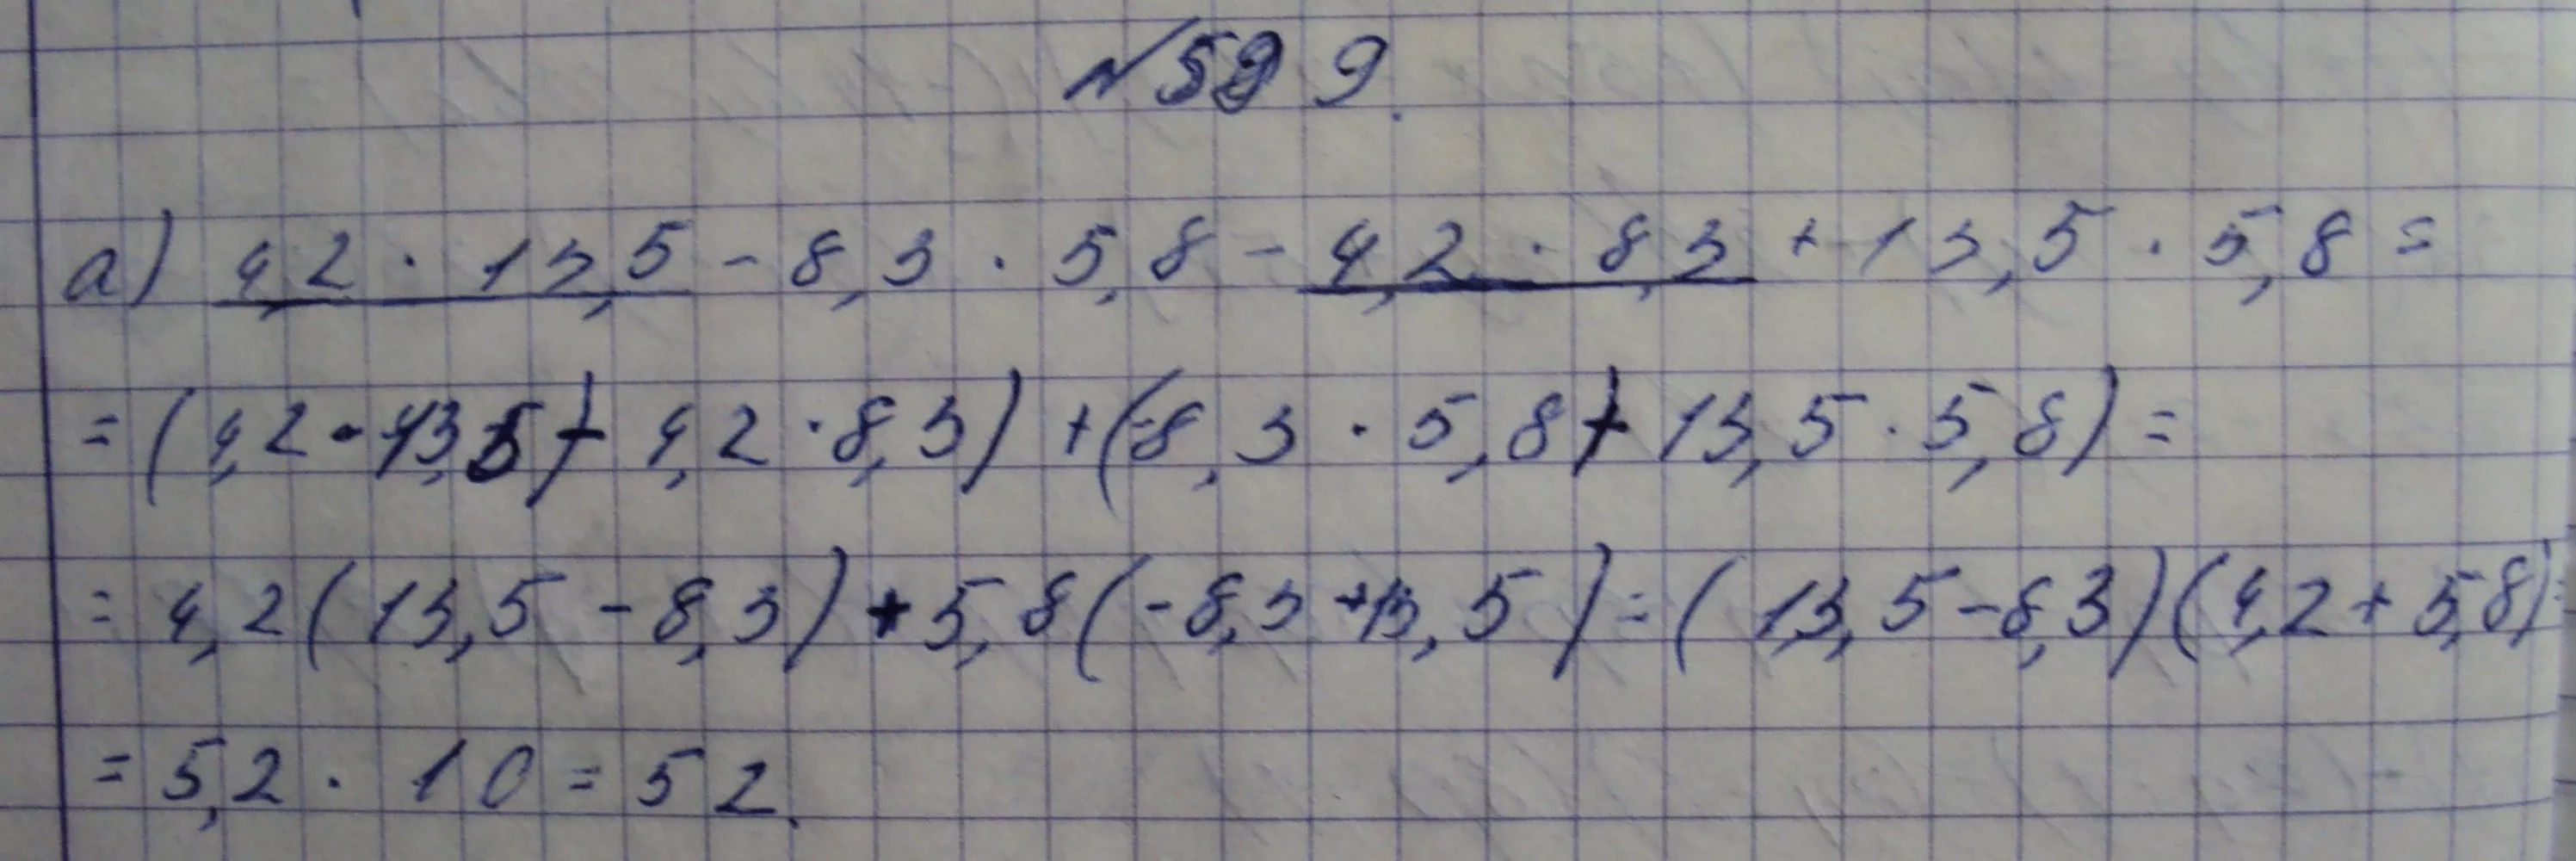 №599.
а) 4,2 · 13,5 - 8,3 · 5,8 - 4,2 · 8,3 + 13,5 · 5,8 =
= (4,2 · 13,5 - 4,2 · 8,3) + (-8,3 · 5,8 + 13,5 · 5,8) =
= 4,2 (13,5 - 8,3) + 5,8 (-8,3 + 13,5) = (13,5 - 8,3)(4,2 + 5,8) =
= 5,2 · 10 = 52.